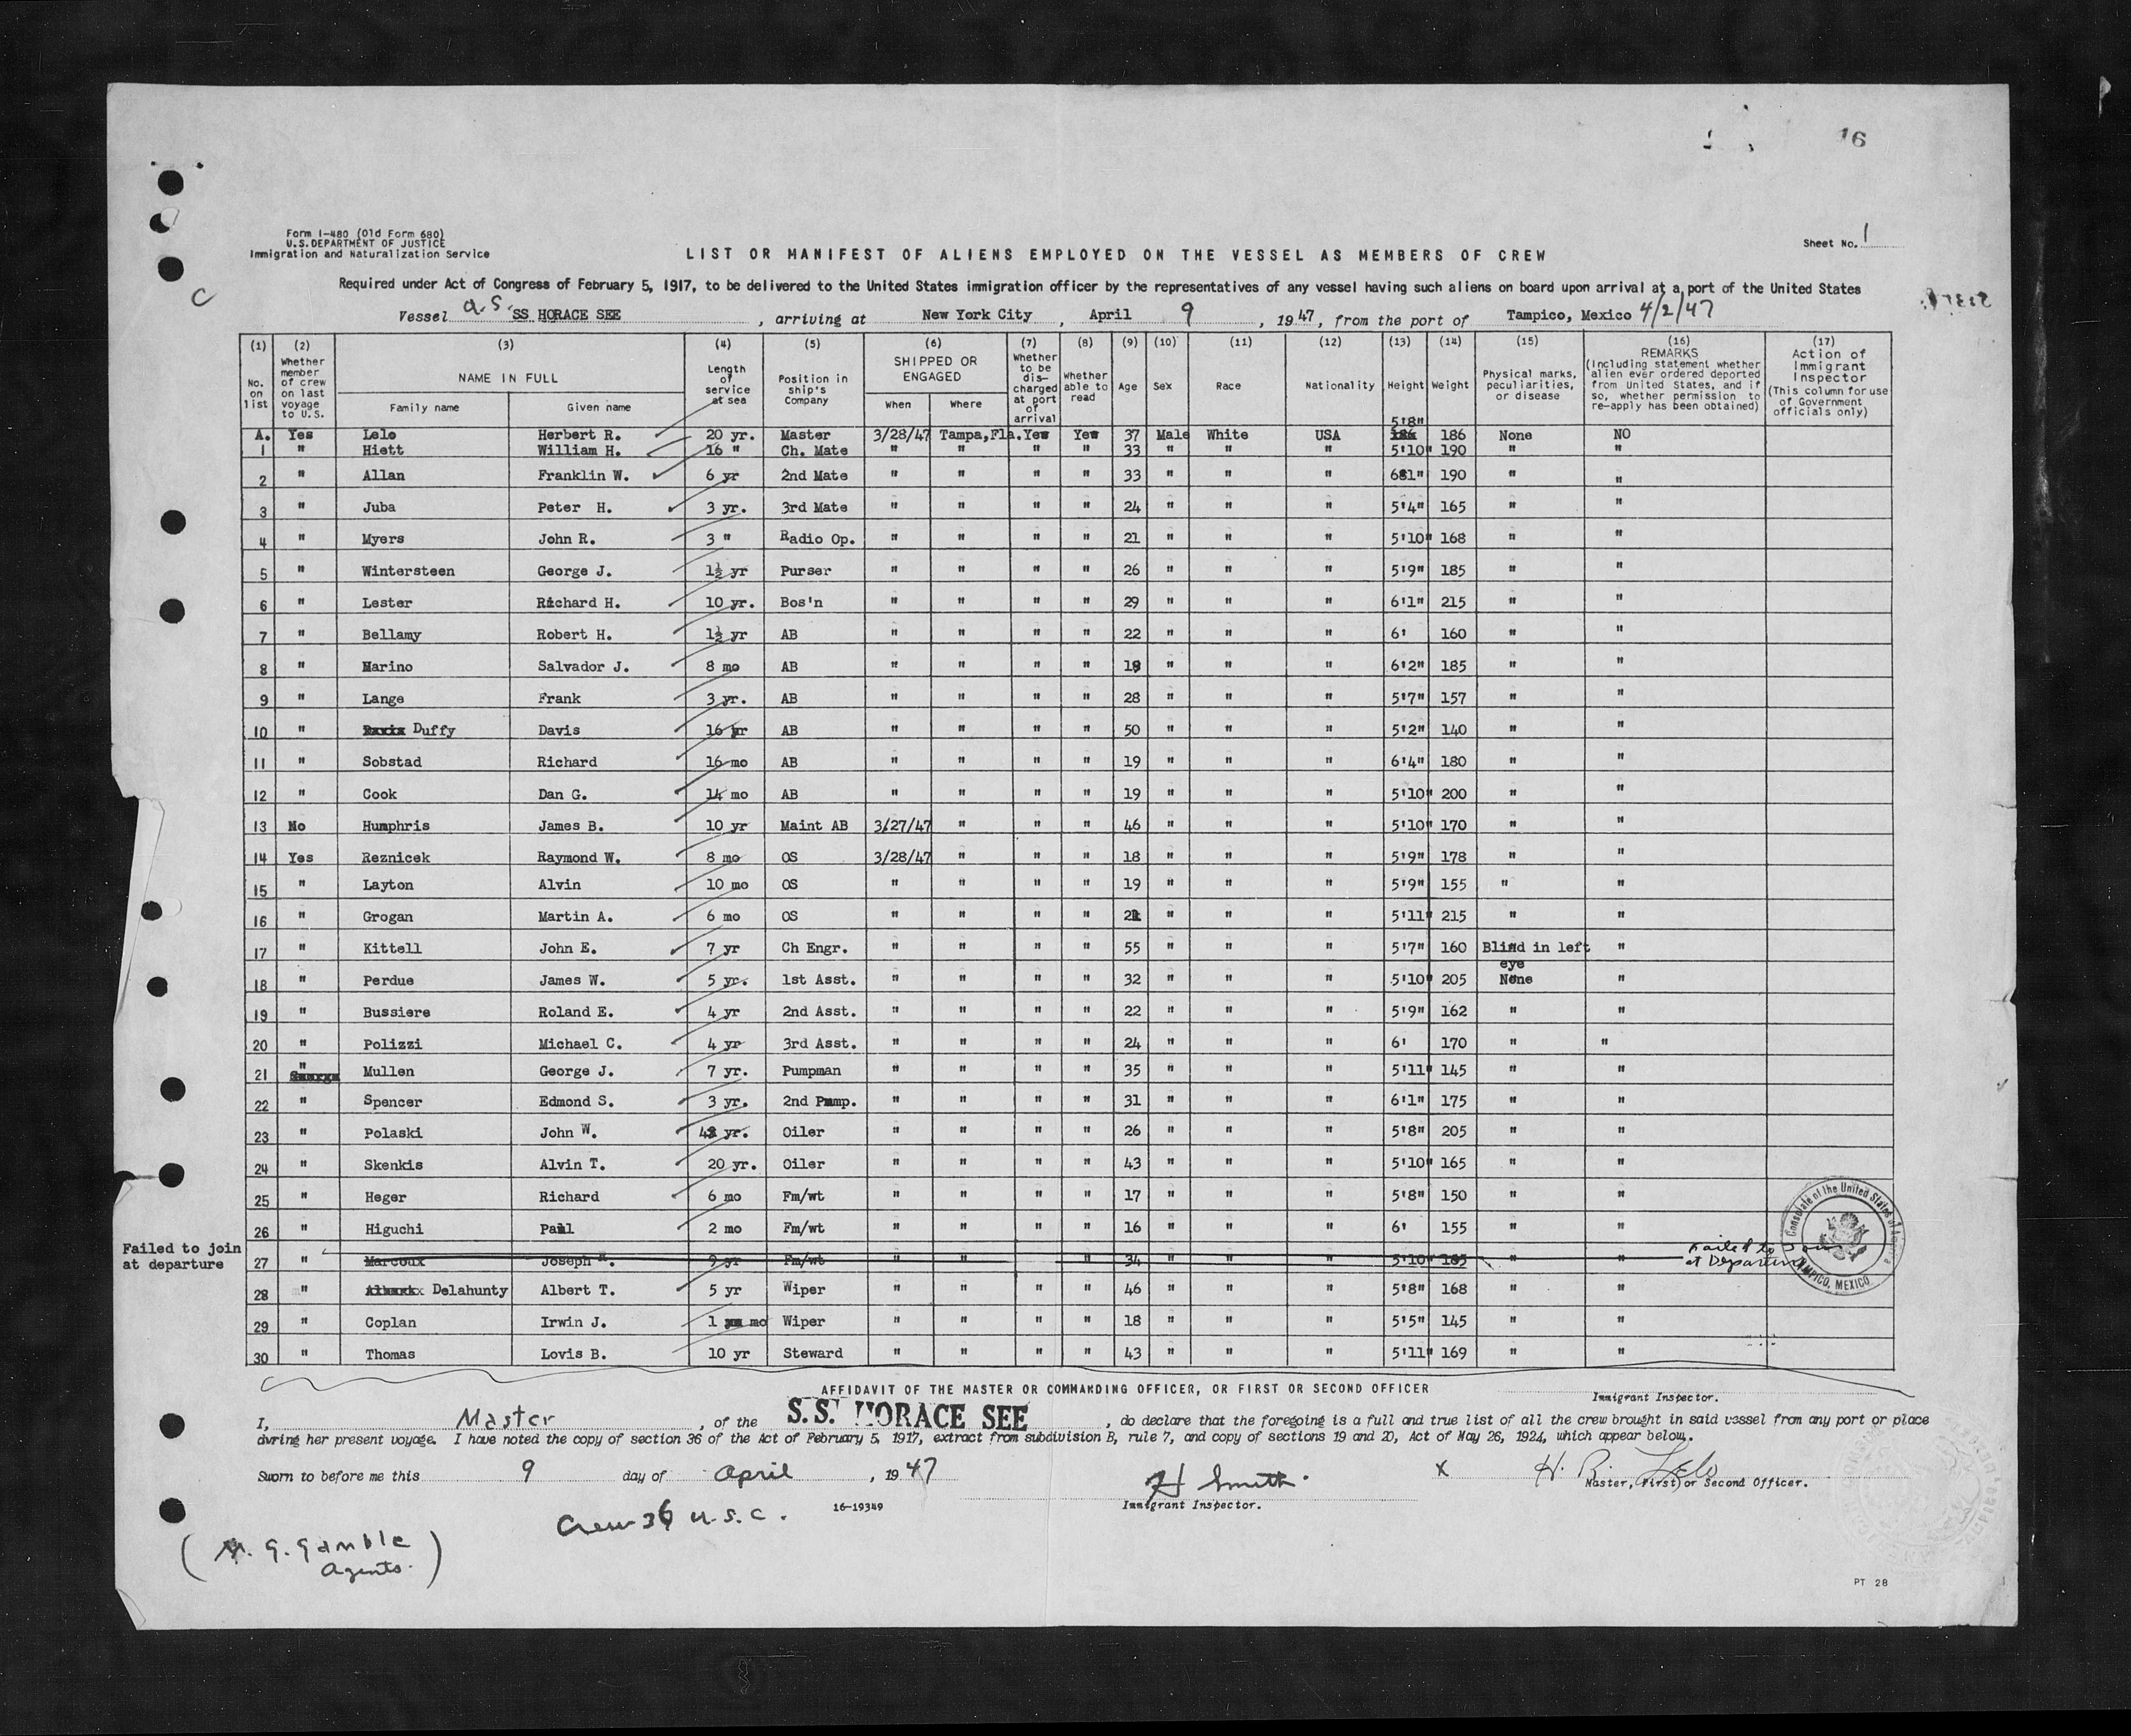 16
Form I-480 (Old Form 680)
U.S. DEPARTMENT OF JUSTICE
Immigration and Naturalization Service
LIST OR MANIFEST OF ALIENS EMPLOYED ON THE VESSEL AS MEMBERS OF CREW
Sheet No. 1
Required under Act of Congress of February 5, 1917, to be delivered to the United States immigration officer by the representatives of any vessel having such aliens on board upon arrival at a port of the United States
C
Vessel a.S. SS HORACE SEE, arriving at New York City, April 9, 1947, from the port of Tampico, Mexico 4/2/47
(1) No. on list
(2) Whether member of crew on last voyage to U.S.
(3) NAME IN FULL Family name Given name
(4) Length of service at sea
(5) Position in ship's Company
(6) SHIPPED OR ENGAGED When Where
(7) Whether to be discharged at port of arrival
(8) Whether able to read
(9) Age
(10) Sex
(11) Race
(12) Nationality
(13) Height
(14) Weight
(15) Physical marks, peculiarities, or disease
(16) REMARKS (Including statement whether alien ever ordered deported from United States, and if so, whether permission to re-apply has been obtained)
(17) Action of Immigrant Inspector (This column for use of Government officials only)
A. Yes Lelo Herbert R. 20 yr. Master 3/28/47 Tampa,Fla. Yes Yes 37 Male White USA 5'8" 186 None NO
1 " Hiett William H. 16 " Ch. Mate " " " " 33 " " " 5'10" 190 " "
2 " Allan Franklin W. 6 yr 2nd Mate " " " " 33 " " " 6'1" 190 " "
3 " Juba Peter H. 3 yr. 3rd Mate " " " " 24 " " " 5'4" 165 " "
4 " Myers John R. 3 " Radio Op. " " " " 21 " " " 5'10" 168 " "
5 " Wintersteen George J. 1½ yr Purser " " " " 26 " " " 5'9" 185 " "
6 " Lester Richard H. 10 yr. Bos'n " " " " 29 " " " 6'1" 215 " "
7 " Bellamy Robert H. 1½ yr AB " " " " 22 " " " 6' 160 " "
8 " Marino Salvador J. 8 mo AB " " " " 19 " " " 6'2" 185 " "
9 " Lange Frank 3 yr. AB " " " " 28 " " " 5'7" 157 " "
10 " Duffy Davis 16 yr AB " " " " 50 " " " 5'2" 140 " "
11 " Sobstad Richard 16 mo AB " " " " 19 " " " 6'4" 180 " "
12 " Cook Dan G. 14 mo AB " " " " 19 " " " 5'10" 200 " "
13 No Humphris James B. 10 yr Maint AB 3/27/47 " " " 46 " " " 5'10" 170 " "
14 Yes Reznicek Raymond W. 8 mo OS 3/28/47 " " " 18 " " " 5'9" 178 " "
15 " Layton Alvin 10 mo OS " " " " 19 " " " 5'9" 155 " "
16 " Grogan Martin A. 6 mo OS " " " " " " " 5'11" 215 " "
17 " Kittell John E. 7 yr Ch Engr. " " " " 55 " " " 5'7" 160 Blind in left eye "
18 " Perdue James W. 5 yr. 1st Asst. " " " " 32 " " " 5'10" 205 None "
19 " Bussiere Roland E. 4 yr 2nd Asst. " " " " 22 " " " 5'9" 162 " "
20 " Polizzi Michael C. 4 yr 3rd Asst. " " " " 24 " " " 6' 170 " "
21 " Mullen George J. 7 yr. Pumpman " " " " 35 " " " 5'11" 145 " "
22 " Spencer Edmond S. 3 yr. 2nd Pump. " " " " 31 " " " 6'1" 175 " "
23 " Polaski John W. yr. Oiler " " " " 26 " " " 5'8" 205 " "
24 " Skenkis Alvin T. 20 yr. Oiler " " " " 43 " " " 5'10" 165 " "
25 " Heger Richard 6 mo Fm/wt " " " " 17 " " " 5'8" 150 " "
26 " Higuchi Paul 2 mo Fm/wt " " " " 16 " " " 6' 155 " "
Failed to join at departure
27 " Marcoux Joseph 9 yr Fm/wt " " " " 34 " " " 5'10" 165 " " Failed to Join at Departure
28 " Delahunty Albert T. 5 yr Wiper " " " " 46 " " " 5'8" 168 " "
29 " Coplan Irwin J. 1 mo Wiper " " " " 18 " " " 5'5" 145 " "
30 " Thomas Lovis B. 10 yr Steward " " " " 43 " " " 5'11" 169 " "
Consulate of the United States of America
TAMPICO, MEXICO
AFFIDAVIT OF THE MASTER OR COMMANDING OFFICER, OR FIRST OR SECOND OFFICER
Immigrant Inspector.
I, Master, of the S.S. HORACE SEE, do declare that the foregoing is a full and true list of all the crew brought in said vessel from any port or place
during her present voyage. I have noted the copy of section 36 of the Act of February 5, 1917, extract from subdivision B, rule 7, and copy of sections 19 and 20, Act of May 26, 1924, which appear below.
Sworn to before me this 9 day of April, 1947
H Smith.
X H. R. Lelo
Immigrant Inspector.
Master, First or Second Officer.
16-19349
Crew 36 U.S.C.
(M. G. Gamble
Agents.)
PT 28